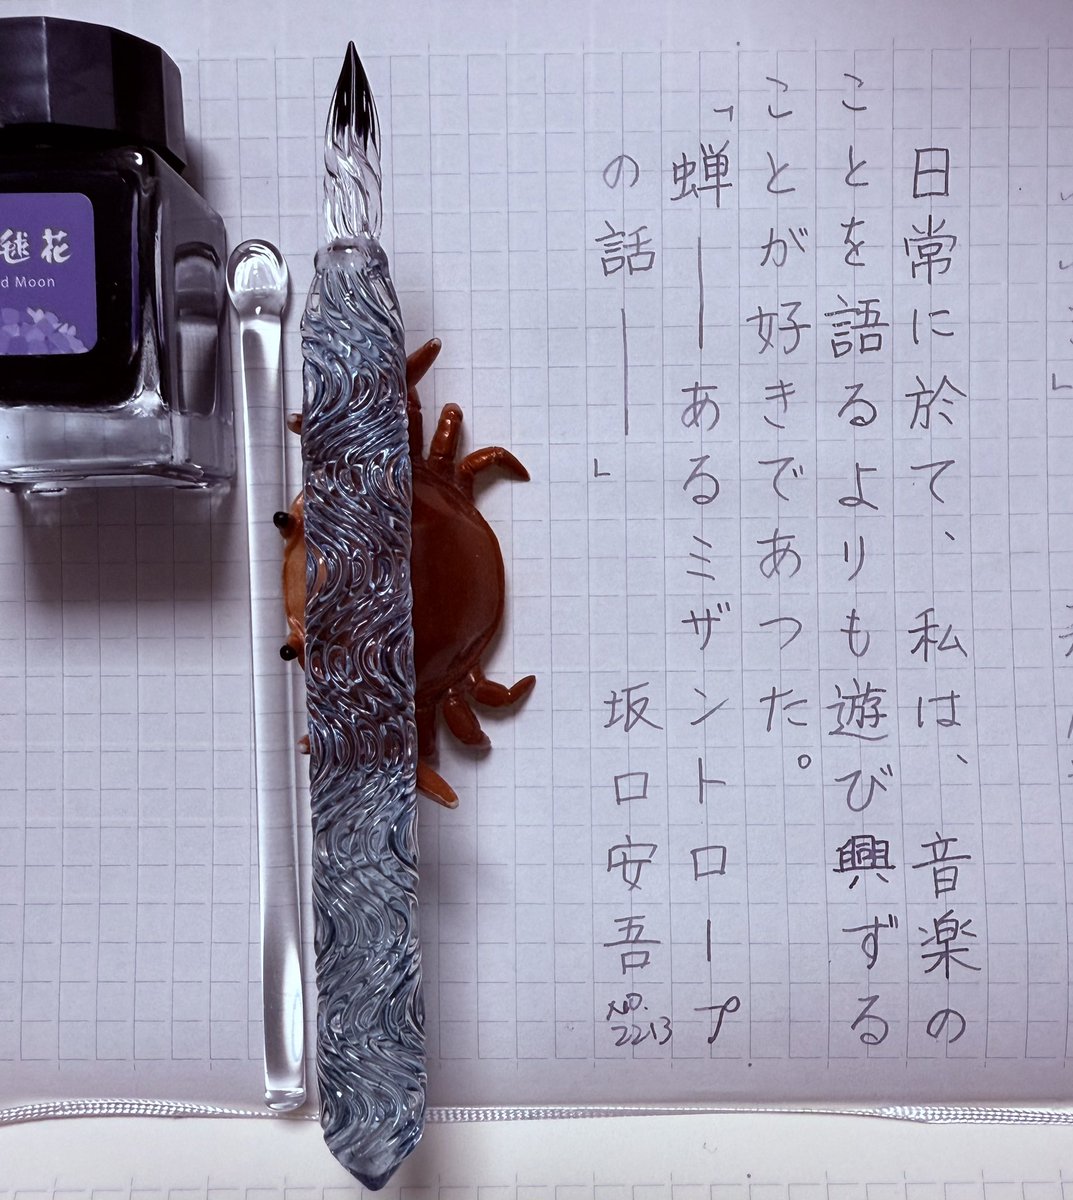 日常に於て、私は、音楽の
ことを語るよりも遊び興ずる
ことが好きであつた。
「蝉――あるミザントロープ
の話――」 坂口安吾
No.2213
毬花
d Moon